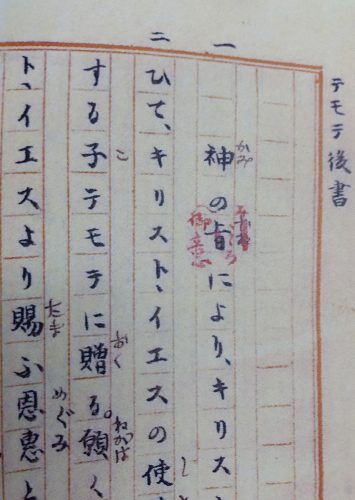 テモテ後書
一 神の旨により、キリス
御意
かみ
二 ひて、キリスト、イエスの使
する子テモテに贈る。願く
こ
おく
ねがは
ト、イエスより賜ふ恩惠と
たま
めぐみ